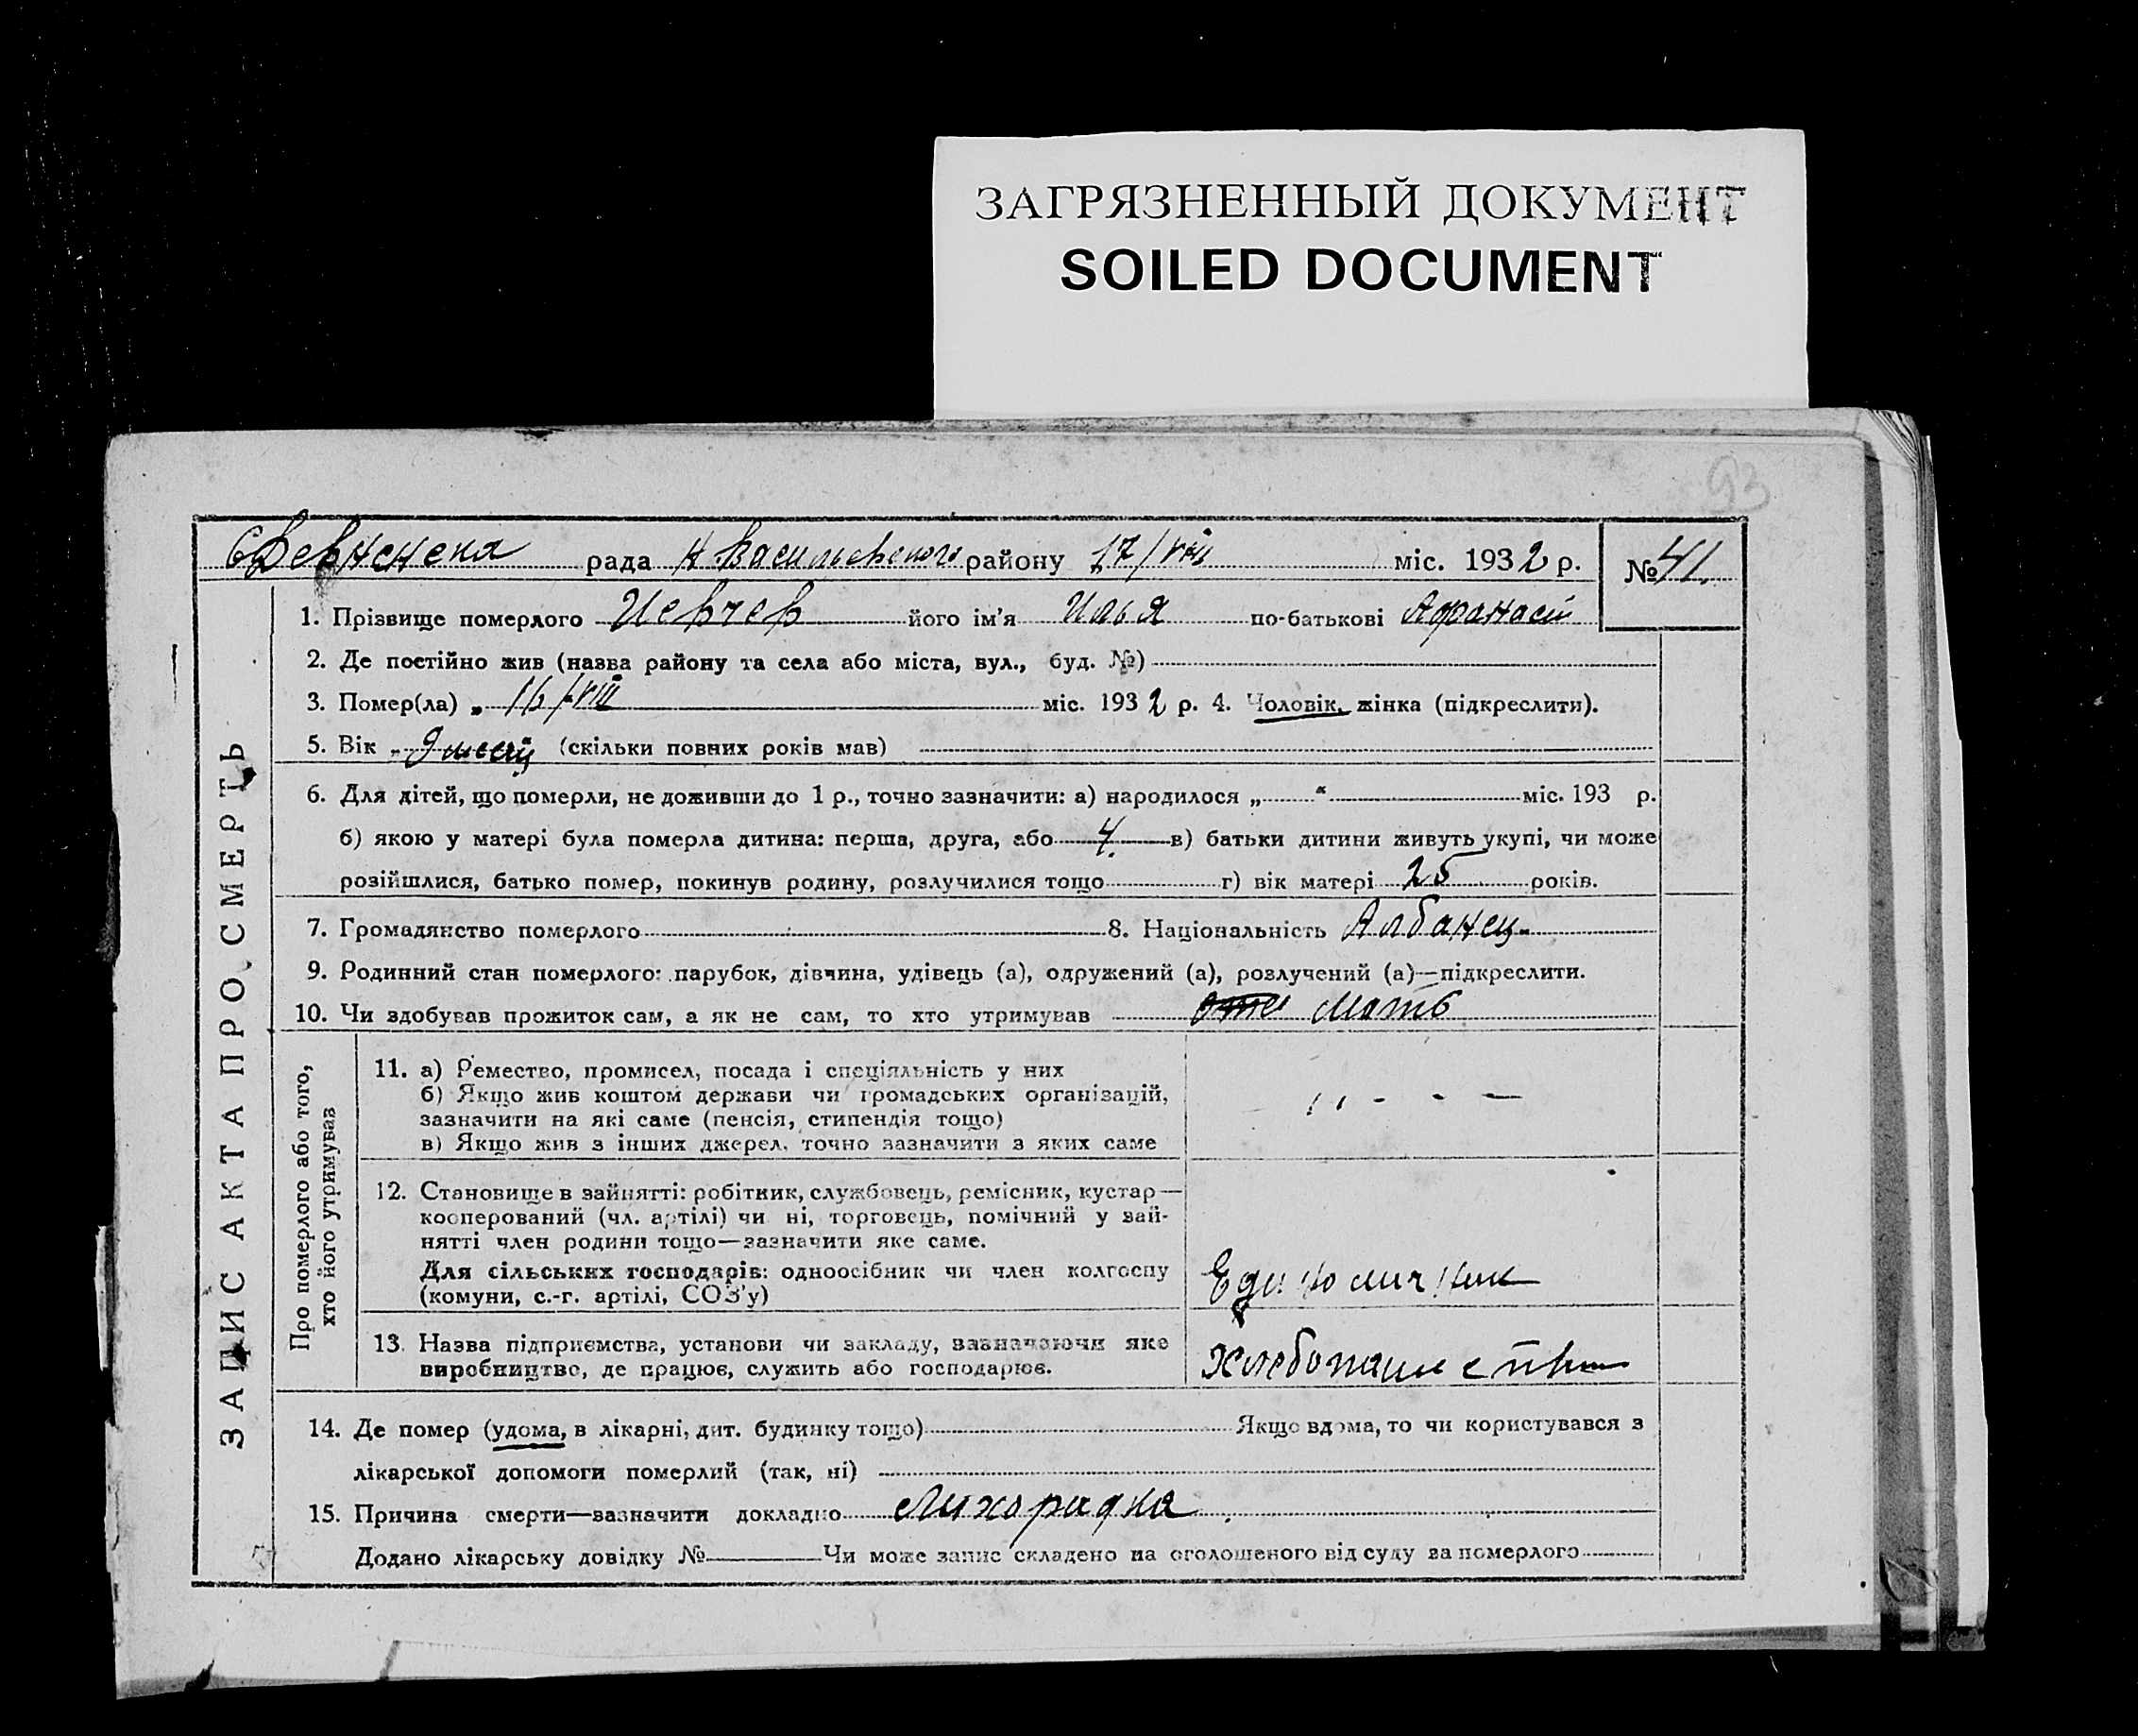 ЗАГРЯЗНЕННЫЙ ДОКУМЕНТ
SOILED DOCUMENT
93
рада Н Васильевского району 17/VIII міс. 1932 р. № 41.
ЗАПИС АКТА ПРО СМЕРТЬ
1. Прізвище померлого його ім'я Илья по-батькові Афанасій
2. Де постійно жив (назва району та села або міста, вул., буд. №)
3. Помер(ла) „ 16/VIII міс. 1932 р. 4. Чоловік, жінка (підкреслити).
5. Вік „ 9 месяц (скільки повних років мав)
6. Для дітей, що померли, не доживши до 1 р., точно зазначити: а) народилося „ “ міс. 193 р.
б) якою у матері була померла дитина: перша, друга, або 4. в) батьки дитини живуть укупі, чи може
розійшлися, батько помер, покинув родину, розлучилися тощо г) вік матері 25 років.
7. Громадянство померлого 8. Національність Албанец
9. Родинний стан померлого: парубок, дівчина, удівець (а), одружений (а), розлучений (а)—підкреслити.
10. Чи здобував прожиток сам, а як не сам, то хто утримував Мать
Про померлого або того,
хто його утримував
11. а) Ремество, промисел, посада і спеціяльність у них
б) Якщо жив коштом держави чи громадських організацій,
зазначити на які саме (пенсія, стипендія тощо)
в) Якщо жив з інших джерел, точно зазначити з яких саме
12. Становище в зайнятті: робітник, службовець, ремісник, кустар—
кооперований (чл. артілі) чи ні, торговець, помічний у зай-
нятті член родини тощо—зазначити яке саме.
Для сільських господарів: одноосібник чи член колгоспу
(комуни, с.-г. артілі, СОЗ'у)
Единоличник
13. Назва підприємства, установи чи закладу, зазначаючи яке
виробництво, де працює, служить або господарює.
14. Де помер (удома, в лікарні, дит. будинку тощо) Якщо вдома, то чи користувався з
лікарської допомоги померлий (так, ні)
15. Причина смерти—зазначити докладно Лихорадка
Додано лікарську довідку № Чи може запис складено на оголошеного від суду за померлого